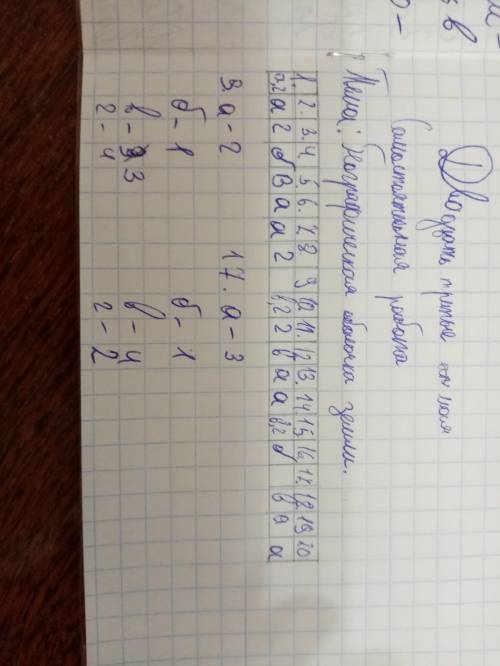 Двадцать третье
Самостоятельная работа
Тема: Географическая оболочка земли.
1. 2. 3. 4. 5. 6. 7. 8. 9 10 11. 12 13. 14 15 16. 17. 18 19 20
а г б в а а г г в а а в,г б в а а
9. а-2 17. а-3
б-1 б-1
в-3 в-4
г-4 г-2